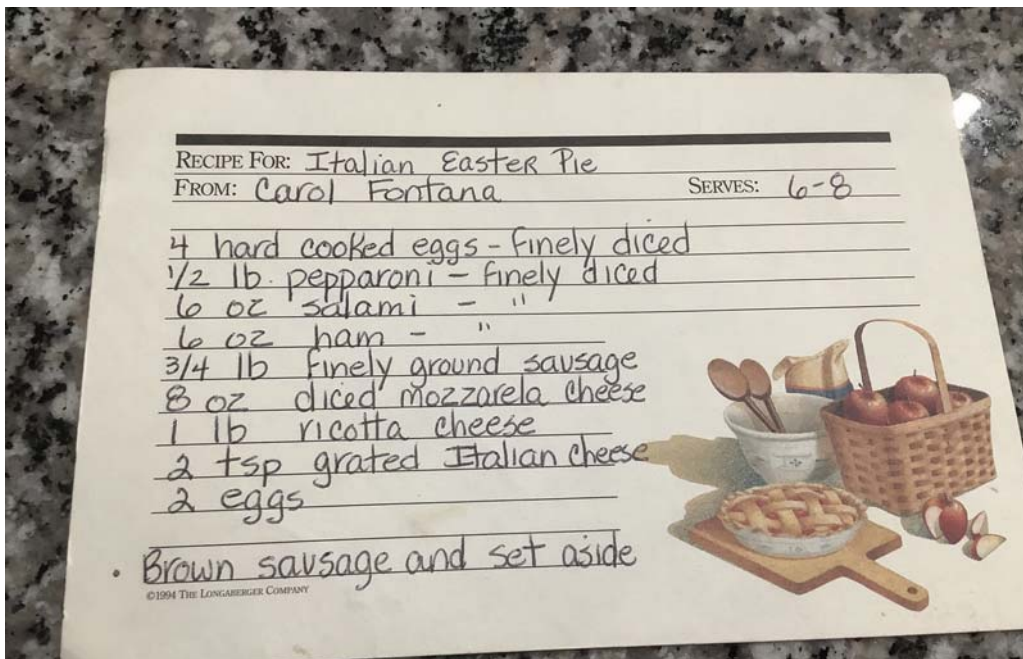 RECIPE FOR: Italian Easter Pie
FROM: Carol Fontana SERVES: 6-8
4 hard cooked eggs - finely diced
1/2 lb. pepparoni - finely diced
6 oz salami - "
6 oz ham - "
3/4 lb finely ground sausage
8 oz diced mozzarela cheese
1 lb ricotta cheese
2 tsp grated Italian cheese
2 eggs
• Brown sausage and set aside
©1994 THE LONGABERGER COMPANY